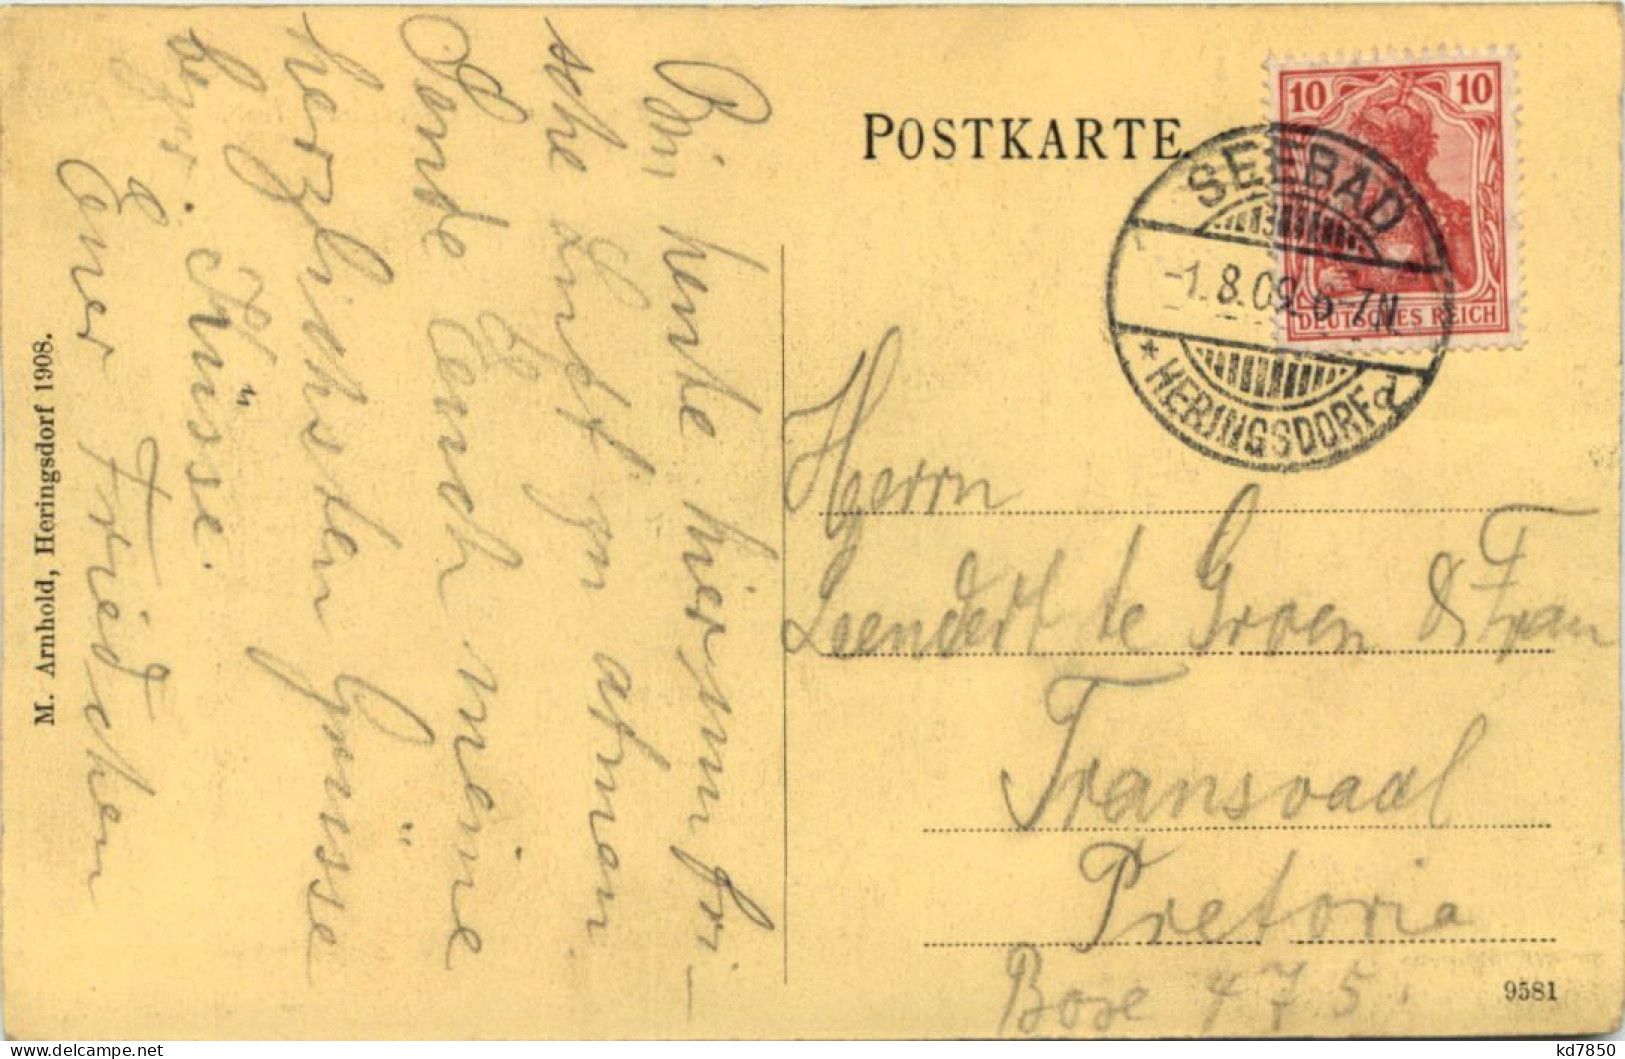 POSTKARTE.
10 10
DEUTSCHES REICH
SEEBAD
-1.8.09. 6-7N.
* HERINGSDORF d
Bin heute hier um fri-
sche Luft zu atmen
Sende Euch meine
herzlichsten Grüsse
bezw. Küsse.
Euer Friedchen
M. Arnhold, Heringsdorf 1908.
Herrn
Leendert te Groen & Frau
Transvaal
Pretoria
Box 475.
9581
kd7850